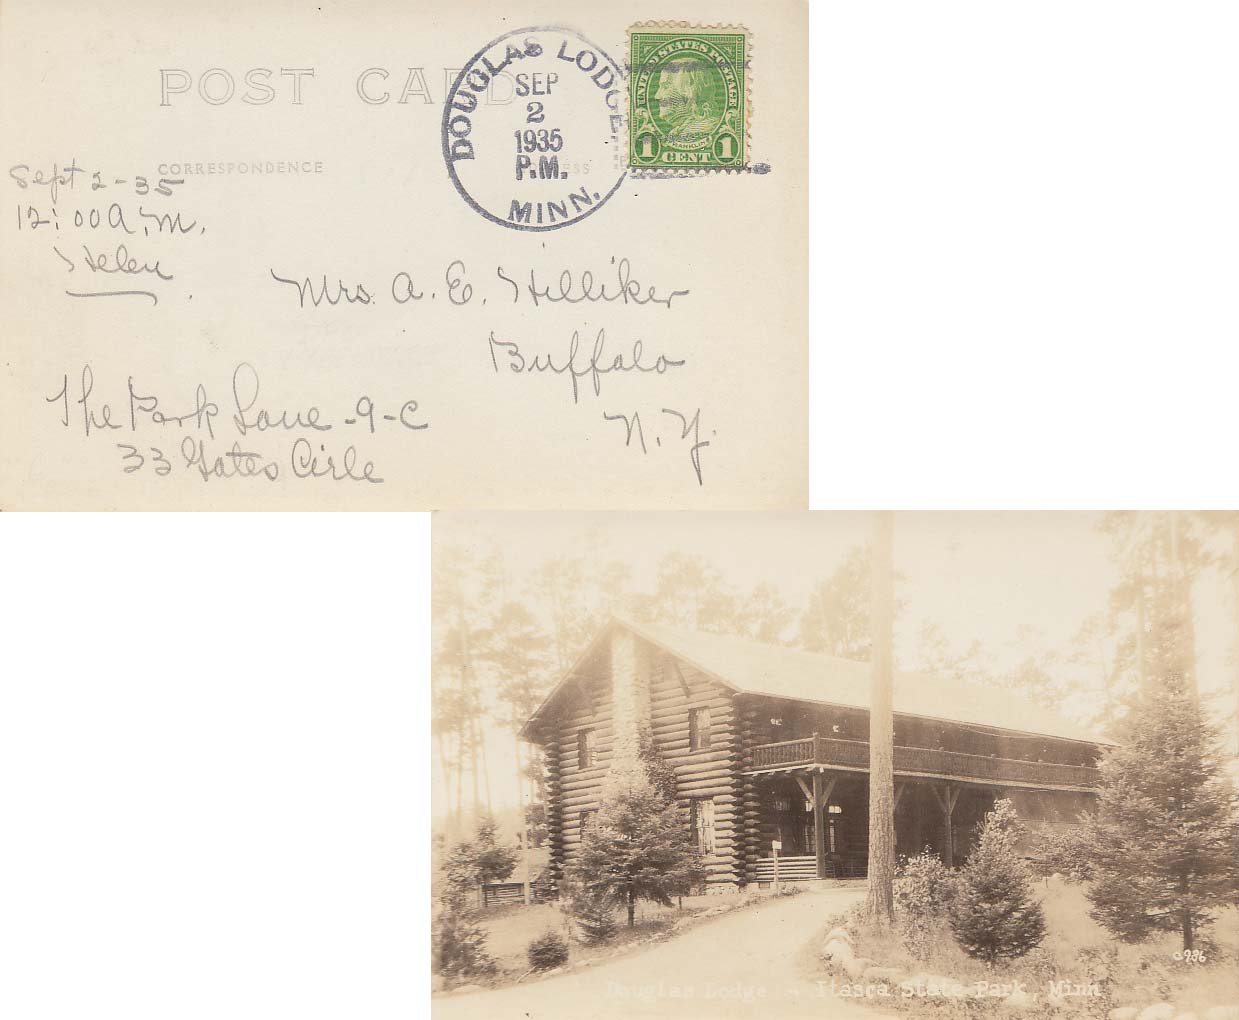 POST CARD
DOUGLAS LODGE
SEP
2
1935
P.M.
MINN.
UNITED STATES POSTAGE
FRANKLIN
1 CENT 1
CORRESPONDENCE
Sept 2-35
12:00 A.M.
Helen
Mrs. A. E. Hilliker
Buffalo
N.Y.
The Park Lane -9-C
33 Gates Cirle
Douglas Lodge - Itasca State Park, Minn
C936